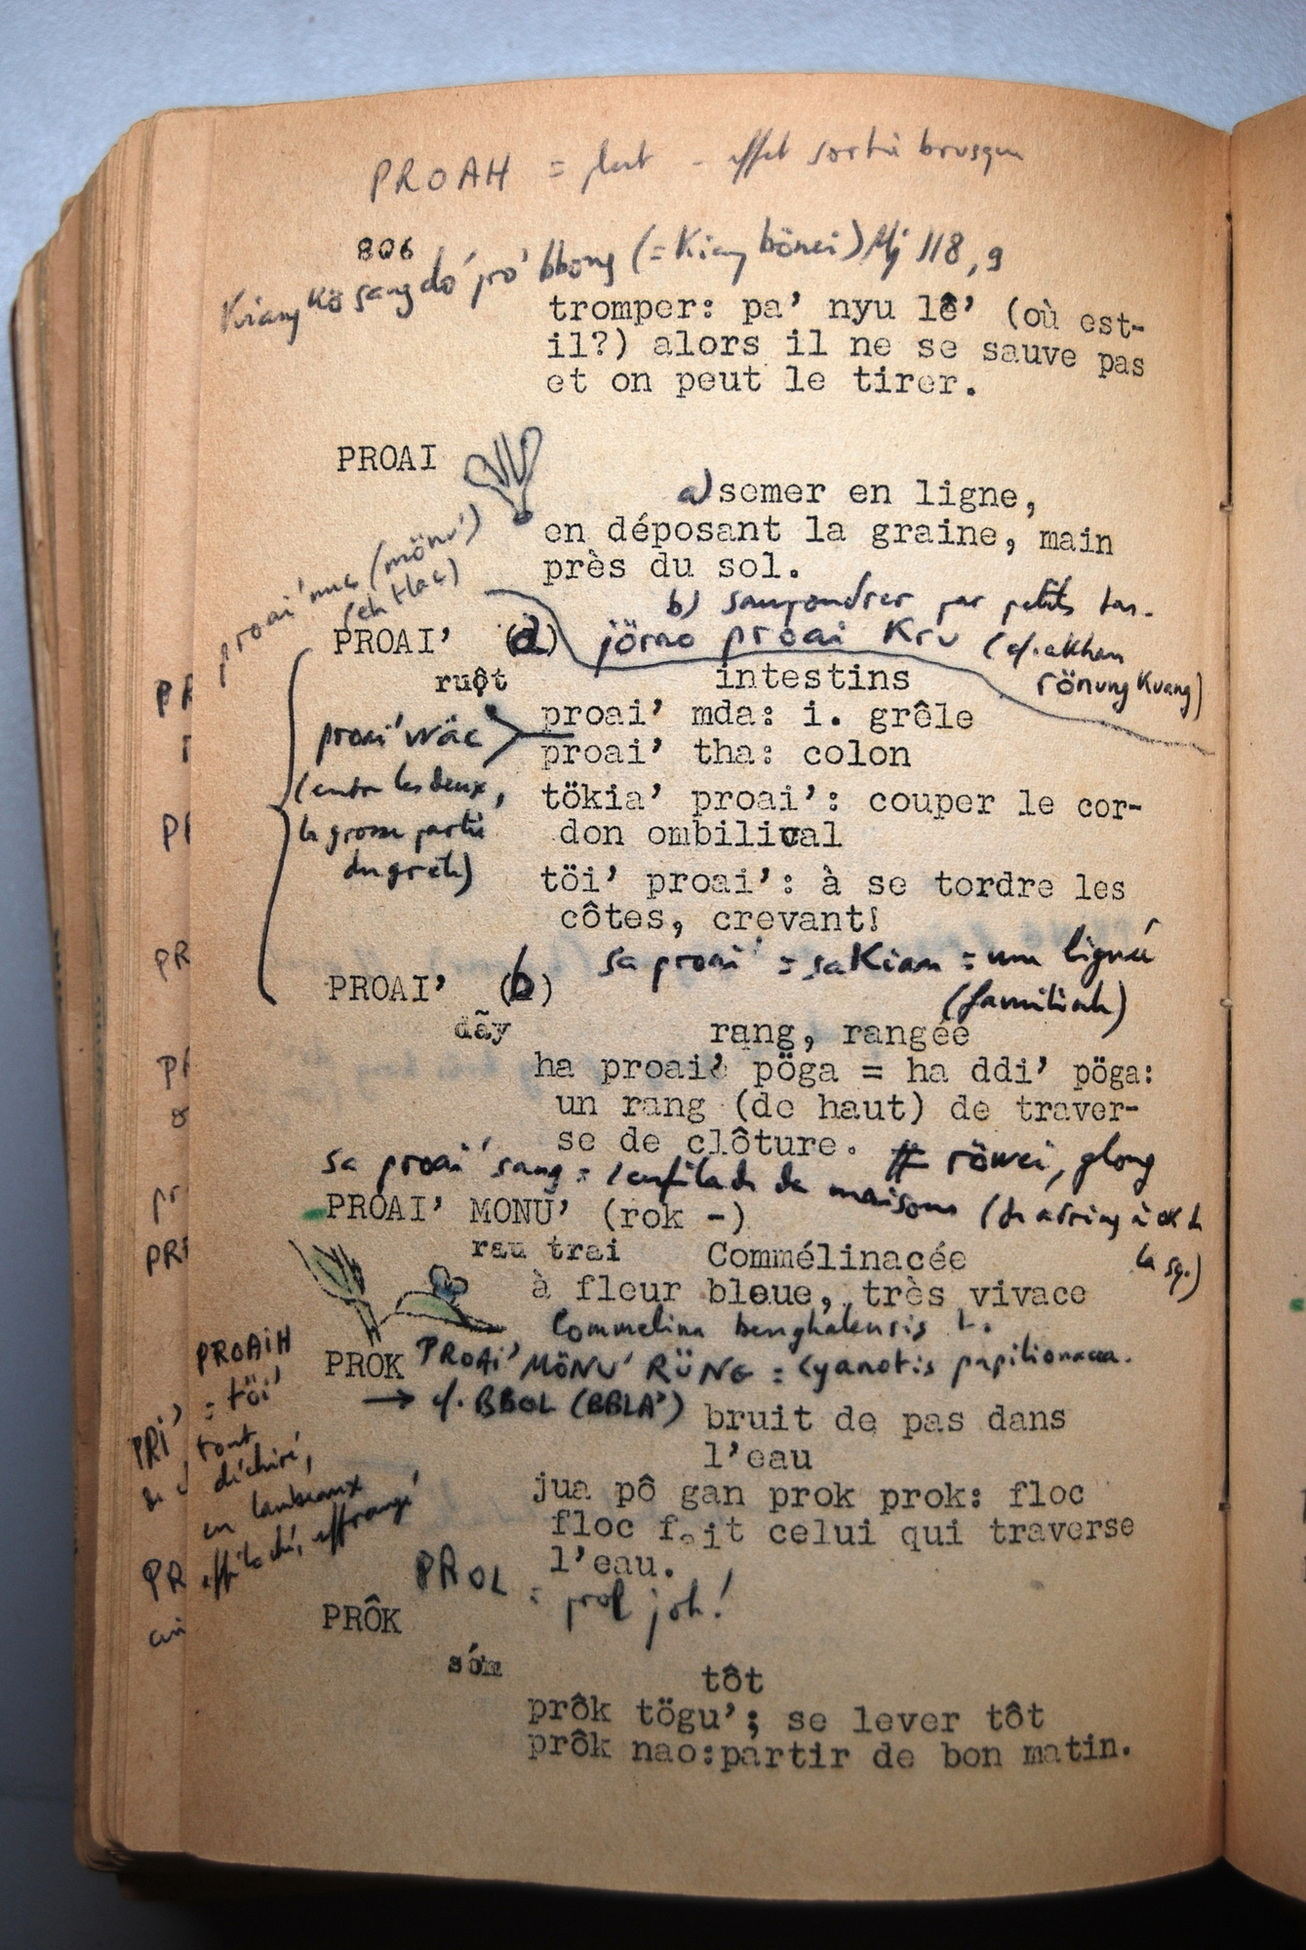 PROAH = - effet sortie brusque
806
Kiang kö sang dó pró' bbong (= Kiang bönei) Mj 118, 9
tromper: pa' nyu lê' (où est-
il?) alors il ne se sauve pas
et on peut le tirer.
PROAI
a) semer en ligne,
en déposant la graine, main
près du sol.
proai' nuc (mönu')
(eh tlac)
b) saupoudrer par petits tas.
jörao proai Kru (cf. akhan
rönung Kuang)
PROAI' (a)
ruột intestins
proai' mda: i. grêle
proai' wäc
proai' tha: colon
(entre les deux,
la grosse partie
du grêle)
tökia' proai': couper le cor-
don ombilical
töi' proai': à se tordre les
côtes, crevant!
sa proai' = sa Kian = une lignée
(familiale)
PROAI' (b)
dãy rang, rangée
ha proai' pöga = ha ddi' pöga:
un rang (de haut) de traver-
se de clôture. # röwei, glong
sa proai' sang = l'enfilade de maisons
la sg.)
PROAI' MONU' (rok -)
rau trai Commélinacée
à fleur bleue, très vivace
Commelina benghalensis L.
PROAI' MÖNU' RÜNG = Cyanotis papilionacea.
PROK
→ cf. BBOL (BBLA')
bruit de pas dans
l'eau
jua pô gan prok prok: floc
floc fait celui qui traverse
l'eau.
PROAIH
= töi'
tout
déchiré,
en lambeaux
effiloché, effrangé
PROL = prol joh!
PRÔK
sớm tôt
prôk tögu'; se lever tôt
prôk nao:partir de bon matin.